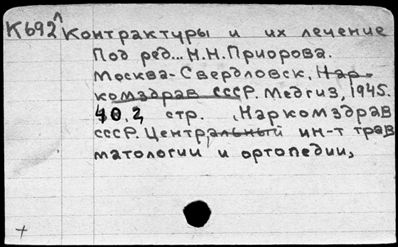 К692 Контрактуры и их лечение
Под ред... Н.Н. Приорова.
Москва-Свердловск, Нар-
комздрав СССР. Медгиз, 1945.
402 стр. Наркомздрав
СССР. Центральный ин-т трав
матологии и ортопедии,